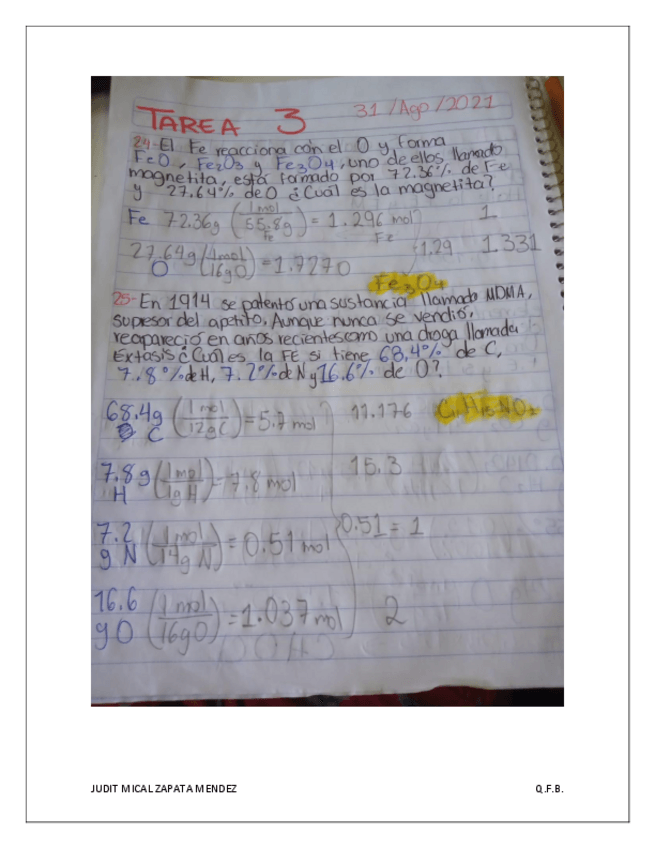 TAREA 3 31/Ago/2021
24.- El Fe reacciona con el O y, forma
FeO, Fe2O3 y Fe3O4, uno de ellos llamado
magnetita, está formado por 72.36% de Fe
y 27.64% de O ¿Cuál es la magnetita?
Fe 72.36g (1mol/55.8g Fe) = 1.296 mol Fe 1
27.64g O (1mol/16gO) = 1.7270 ÷1.29 1.331
Fe3O4
25.- En 1914 se patentó una sustancia llamada MDMA,
supresor del apetito. Aunque nunca se vendió,
reapareció en años recientes como una droga llamada
Éxtasis ¿Cuál es la FE si tiene 68,4% de C,
7.8% de H, 7.2% de N y 16.6% de O?
68.4g C (1mol/12gC) = 5.7 mol 11.176 C11H15NO2
7.8g H (1mol/1gH) = 7.8 mol 15.3
7.2 g N (1mol/14g N) = 0.51 mol 0.51 = 1
16.6 g O (1mol/16gO) = 1.037 mol 2
JUDIT MICAL ZAPATA MENDEZ Q.F.B.